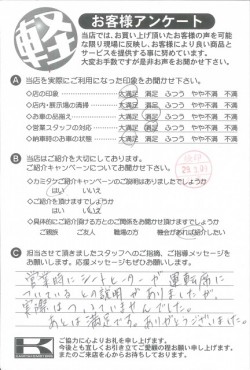 軽
お客様アンケート
当店では、お買い上げ頂いたお客様の声を可能
な限り現場に反映し、お客様により良い商品と
サービスを提供する事に努めています。
大変お手数ですが是非お声をお聞かせ下さい。
A 当店を実際にご利用になった印象をお聞かせ下さい。
◇店の印象 大満足 満足 ふつう やや不満 不満
◇店内・展示場の清掃 大満足 満足 ふつう やや不満 不満
◇お車の品揃え 大満足 満足 ふつう やや不満 不満
◇営業スタッフの対応 大満足 満足 ふつう やや不満 不満
◇納車時のお車の状態 大満足 満足 ふつう やや不満 不満
B 当店はご紹介を大切にしております。
ご紹介キャンペーンについてお聞かせ下さい。
◇カミタケご紹介キャンペーンのご説明はありましたでしょうか
はい いいえ
◇ご紹介を頂けますでしょうか
はい いいえ
◇具体的にご紹介頂ける方とのご関係をお聞かせ頂けますでしょうか
ご親族 ご友人 職場の方 機会があれば紹介したい
C 担当させて頂きましたスタッフへのご指摘、ご指導メッセージを
お願いします。応援メッセージもぜひお願いします。
営業時にシートヒーターが運転席に
ついているとの説明がありましたが、
実際はついていませんでした。
あとは満足です。ありがとうございました。
K
ご協力に心よりお礼を申し上げます。
今後とも宜しくお引き立てご愛顧の程お願い申し上げます。
またのご来店を心からお待ちしております。